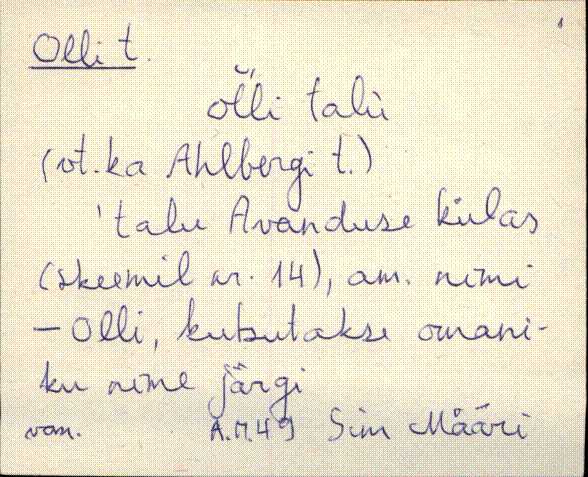 Olli t.
olli talu
(vt. ka Ahlbergi t.)
'talu Avanduse külas
(skeemil nr. 14), am. nimi
— Olli, kutsutakse omani-
ku nime järgi
A.M.49 Sim Määri